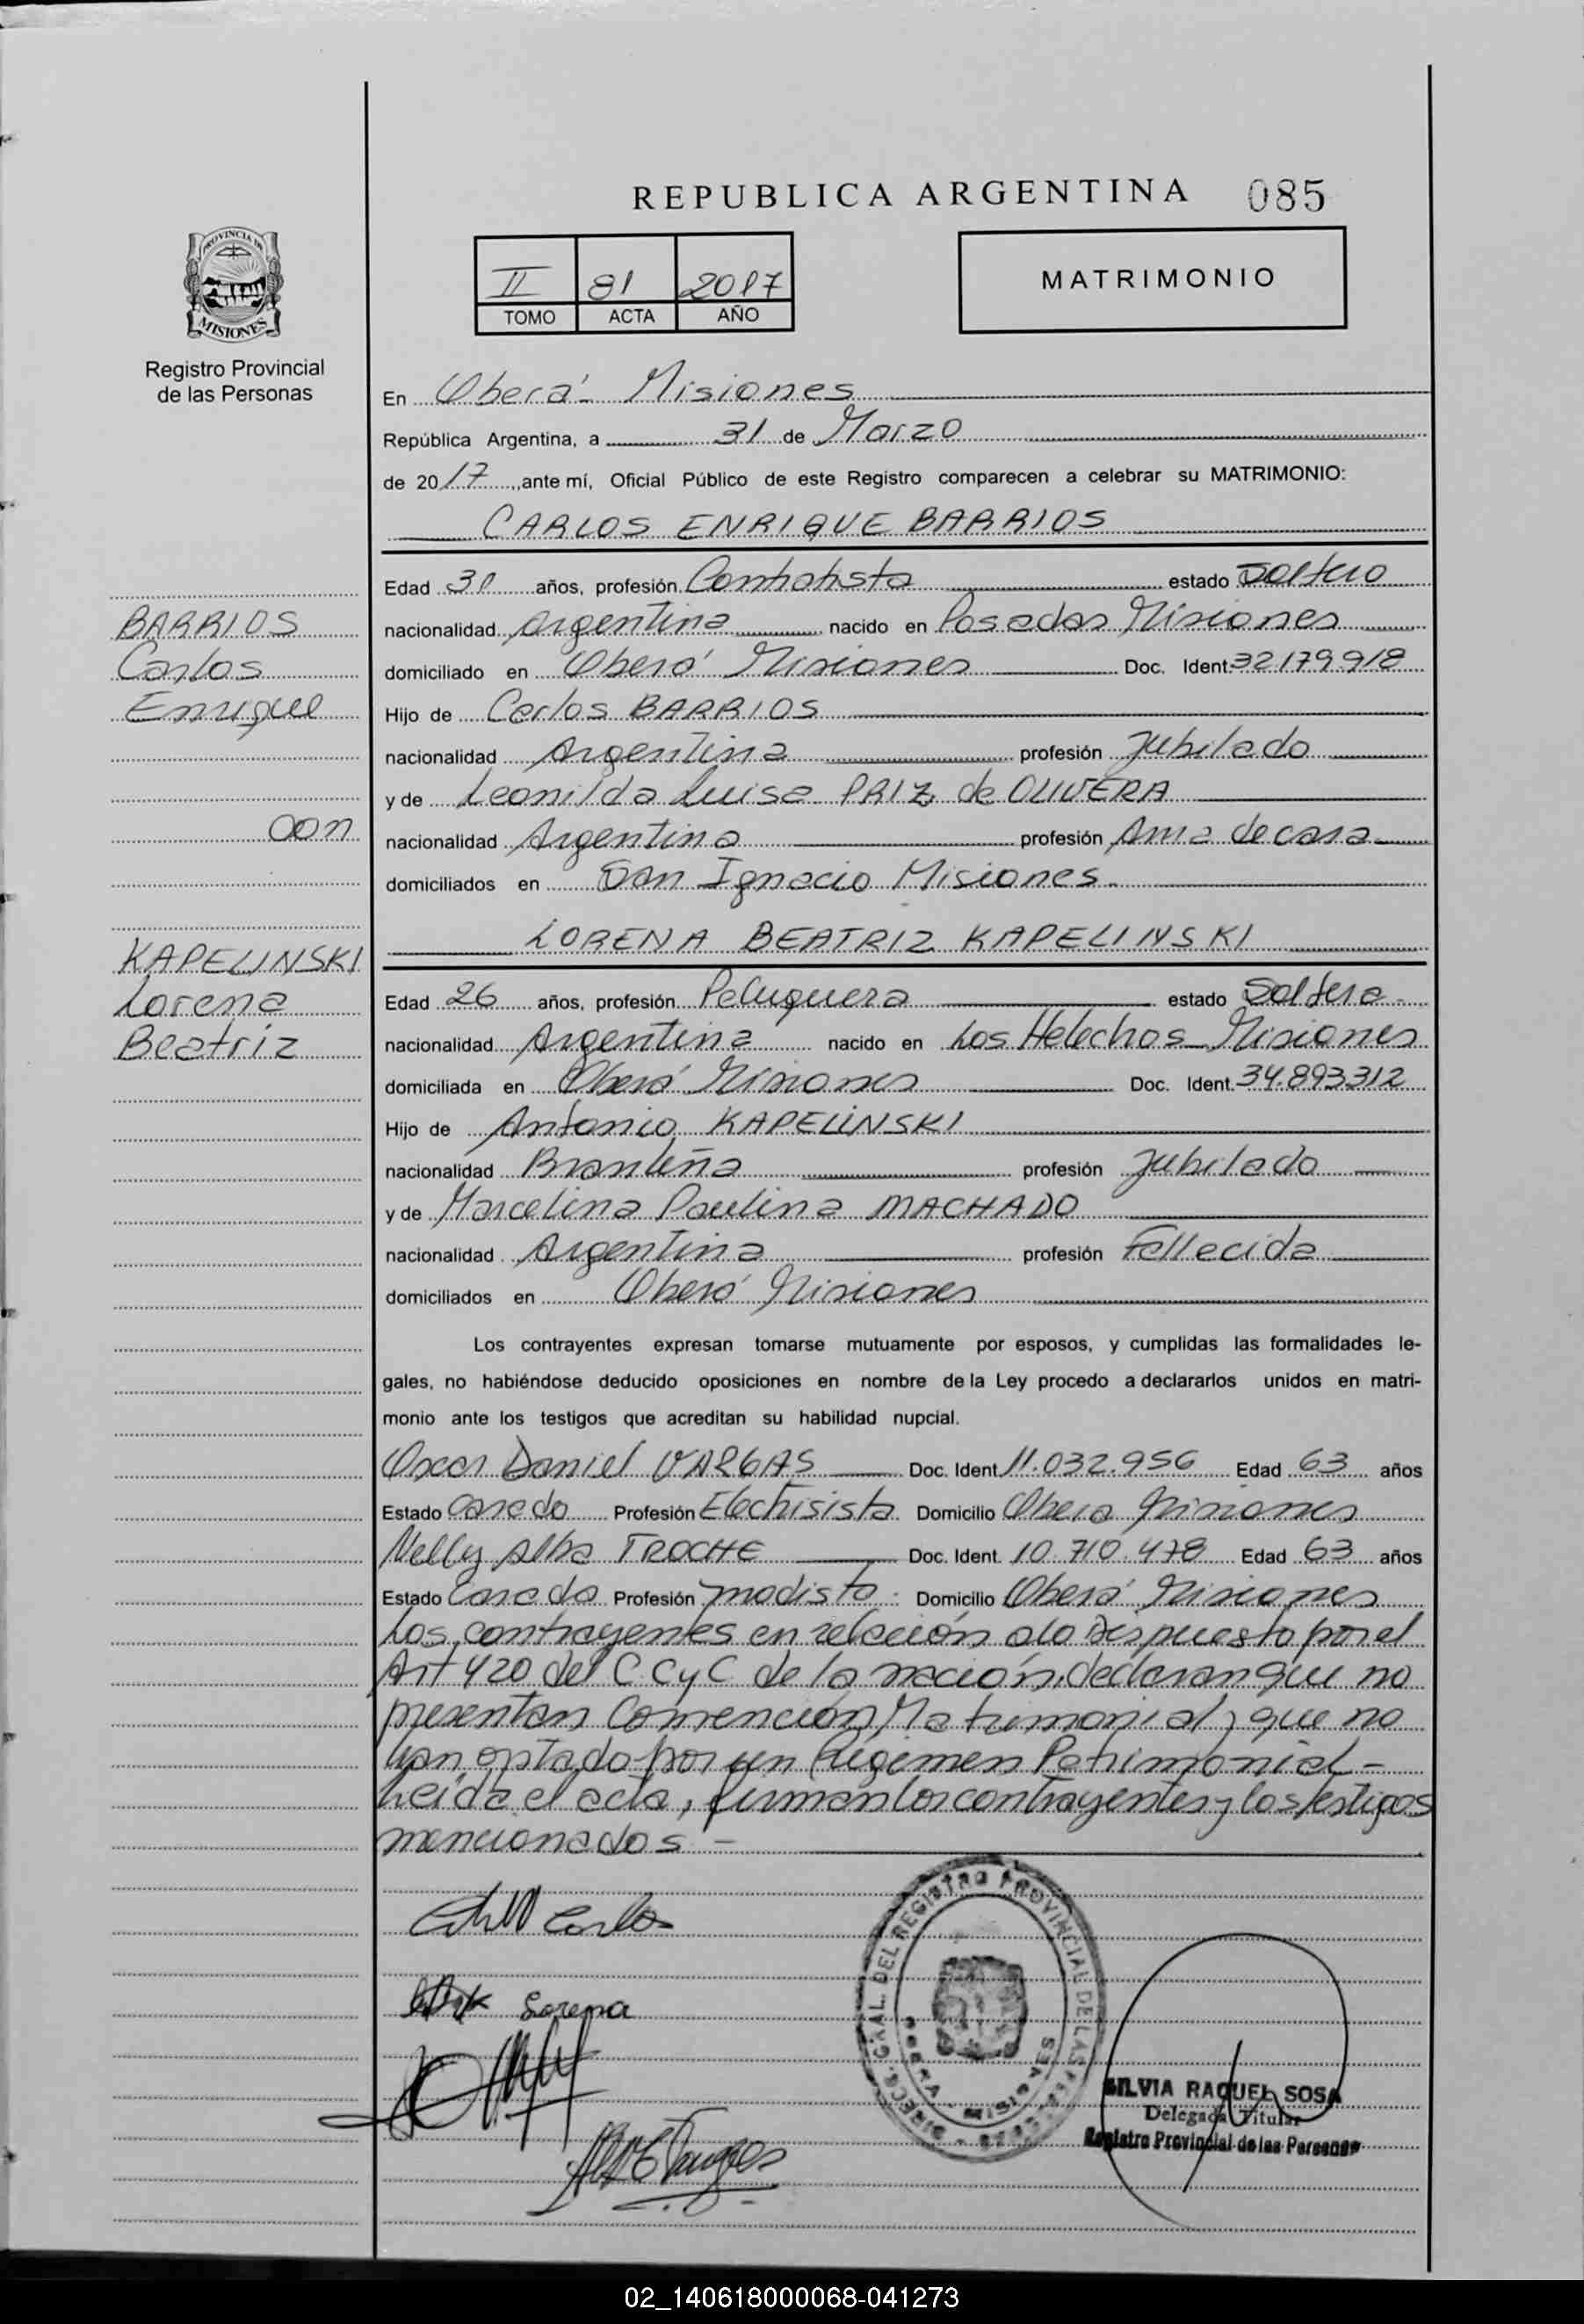 REPUBLICA ARGENTINA 085
PROVINCIA DE
MISIONES
Registro Provincial
de las Personas
II 81 2017
TOMO ACTA AÑO
MATRIMONIO
En Oberá - Misiones
República Argentina, a 31 de Marzo
de 2017, ante mí, Oficial Público de este Registro comparecen a celebrar su MATRIMONIO:
CARLOS ENRIQUE BARRIOS
BARRIOS
Carlos
Enrique
Edad 31 años, profesión Contratista estado Soltero
nacionalidad Argentina nacido en Posadas Misiones
domiciliado en Oberá Misiones Doc. Ident. 32179918
Hijo de Carlos BARRIOS
nacionalidad Argentina profesión Jubilado
y de Leonilda Luisa PRIZ de OLIVERA
con
nacionalidad Argentina profesión Ama de casa
domiciliados en San Ignacio Misiones
LORENA BEATRIZ KAPELINSKI
KAPELINSKI
Lorena
Beatriz
Edad 26 años, profesión Peluquera estado Soltera
nacionalidad Argentina nacido en Los Helechos - Misiones
domiciliada en Oberá Misiones Doc. Ident. 34.893312
Hijo de Antonio KAPELINSKI
nacionalidad Brasileña profesión Jubilado
y de Marcelina Paulina MACHADO
nacionalidad Argentina profesión Fallecida
domiciliados en Oberá Misiones
Los contrayentes expresan tomarse mutuamente por esposos, y cumplidas las formalidades le-
gales, no habiéndose deducido oposiciones en nombre de la Ley procedo a declararlos unidos en matri-
monio ante los testigos que acreditan su habilidad nupcial.
Oscar Daniel VARGAS Doc. Ident. 11.032.956 Edad 63 años
Estado Casado Profesión Electrisista Domicilio Obera Misiones
Nelly Alba TROCHE Doc. Ident. 10.710.478 Edad 63 años
Estado Casada Profesión modista Domicilio Oberá Misiones
Los contrayentes en relación a lo Dispuesto por el
Art 420 del C Cy C de la nación, declaran que no
presentan Convención Matrimonial y que no
han optado por un Régimen Patrimonial -
Leida el acta, firman los contrayentes y los testigos
mencionados -
Carlos
Lorena
DIRECC. GRAL. DEL REGISTRO PROVINCIAL DE LAS PERSONAS
OBERA - MISIONES
SILVIA RAQUEL SOSA
Delegada Titular
Registro Provincial de las Personas
02_140618000068-041273